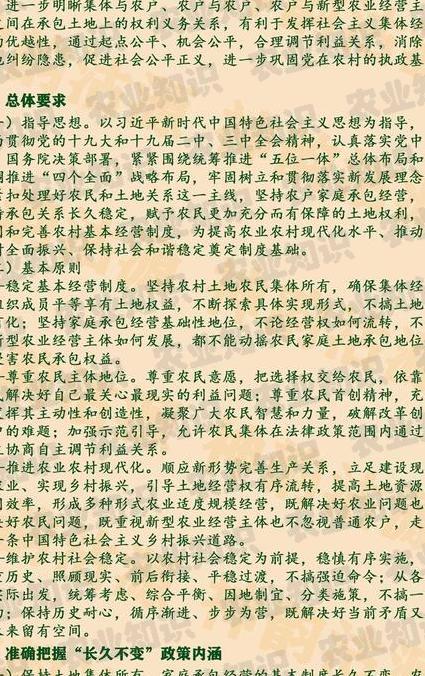 进一步明晰集体与农户、农户与农户、农户与新型农业经营主
之间在承包土地上的权利义务关系，有利于发挥社会主义集体经
的优越性，通过起点公平、机会公平，合理调节利益关系，消除
地纠纷隐患，促进社会公平正义，进一步巩固党在农村的执政基
总体要求
）指导思想。以习近平新时代中国特色社会主义思想为指导，
为贯彻党的十九大和十九届二中、三中全会精神，认真落实党中
国务院决策部署，紧紧围绕统筹推进“五位一体”总体布局和
调推进“四个全面”战略布局，牢固树立和贯彻落实新发展理念
紧扣处理好农民和土地关系这一主线，坚持农户家庭承包经营，
持承包关系长久稳定，赋予农民更加充分而有保障的土地权利，
固和完善农村基本经营制度，为提高农业农村现代化水平、推动
村全面振兴、保持社会和谐稳定奠定制度基础。
二）基本原则
—稳定基本经营制度。坚持农村土地农民集体所有，确保集体经
组织成员平等享有土地权益，不断探索具体实现形式，不搞土地
有化；坚持家庭承包经营基础性地位，不论经营权如何流转，不
新型农业经营主体如何发展，都不能动摇农民家庭土地承包地位
侵害农民承包权益。
—尊重农民主体地位。尊重农民意愿，把选择权交给农民，依靠
民解决好自己最关心最现实的利益问题；尊重农民首创精神，充
发挥其主动性和创造性，凝聚广大农民智慧和力量，破解改革创
中的难题；加强示范引导，允许农民集体在法律政策范围内通过
主协商自主调节利益关系。
—推进农业农村现代化。顺应新形势完善生产关系，立足建设现
农业、实现乡村振兴，引导土地经营权有序流转，提高土地资源
用效率，形成多种形式农业适度规模经营，既解决好农业问题也
决好农民问题，既重视新型农业经营主体也不忽视普通农户，走
一条中国特色社会主义乡村振兴道路。
—维护农村社会稳定。以农村社会稳定为前提，稳慎有序实施，
重历史、照顾现实、前后衔接、平稳过渡，不搞强迫命令；从各
实际出发，统筹考虑、综合平衡、因地制宜、分类施策，不搞一
切；保持历史耐心，循序渐进、步步为营，既解决好当前矛盾又
未来留有空间。
准确把握“长久不变”政策内涵
农业知识